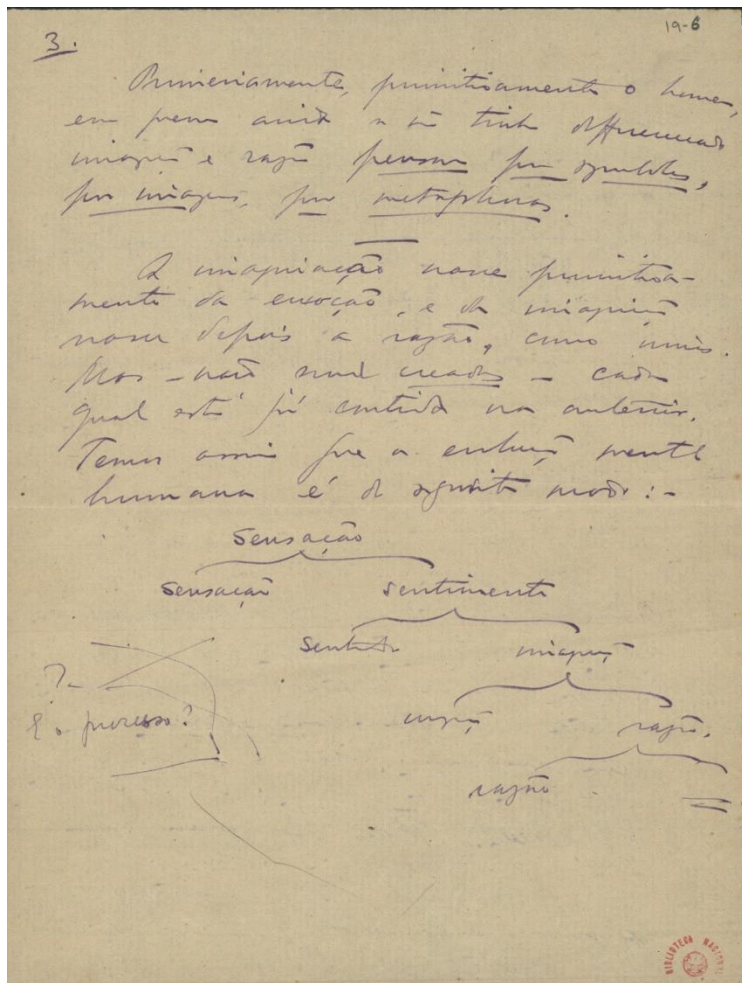 19-6
3.
Primeiramente, primitivamente o homem,
em quem ainda não se tinha differenciado
imaginação e razão pensou por symbolos,
por imagens, por metaphoras.
A imaginação nasce primitiva-
mente da emoção, e da imaginação
nasce depois a razão,
Mas - não creadas - cada
qual está já contida na anterior.
Temos assim que a evolução mental
humana é do seguinte modo: -
Sensação
Sensação sentimento
Sentido imaginação
razão.
razão
E o processo?
BIBLIOTECA NACIONAL